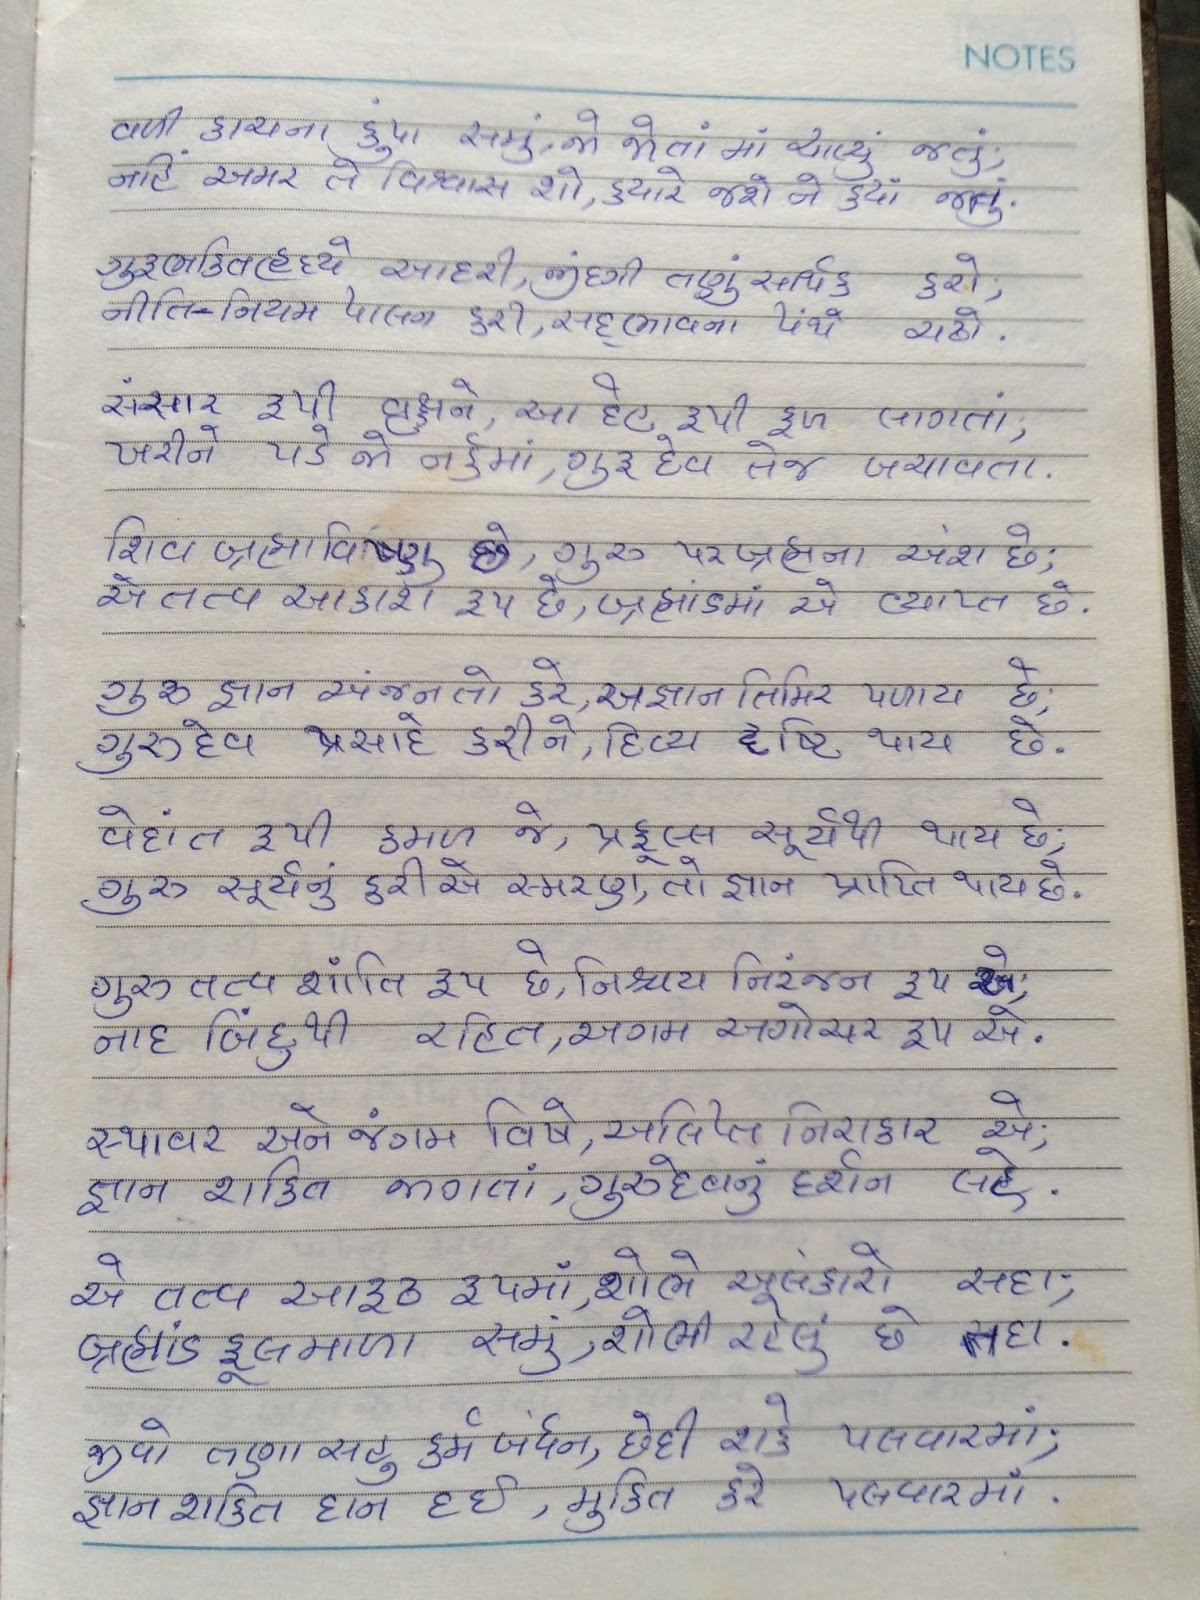 NOTES
વળી કાચના કુંપા સમું, જો જોતાં માં ચાલ્યું જતું;
નહિં અમર તે વિશ્વાસ શો, ક્યારે જશે ને ક્યાં જતું.
ગુરુભકિત હૃદયે આદરી, જીંદગી તણું સાર્થક કરો;
નીતિ-નિયમ પાલન કરી, સદ્દભાવના પંથે ચઢો.
સંસાર રૂપી વૃક્ષને, આ દેહ રૂપી ફળ લાગતાં;
ખરીને પડે જો નર્કમાં, ગુરૂદેવ તેજ બચાવતા.
શિવ બ્રહ્મા વિષ્ણુ છે, ગુરુ પરબ્રહ્મના અંશ છે;
એ તત્વ આકાશ રૂપ છે, બ્રહ્માંડમાં એ વ્યાપ્ત છે.
ગુરુ જ્ઞાન અંજન તો કરે, અજ્ઞાન તિમિર પળાય છે;
ગુરુદેવ પ્રસાદે કરીને, દિવ્ય દૃષ્ટિ થાય છે.
વેદાંત રૂપી કમળ જે, પ્રફૂલ્લ સૂર્યથી થાય છે;
ગુરુ સૂર્યનું કરીએ સ્મરણ, તો જ્ઞાન પ્રાપ્તિ થાય છે.
ગુરુ તત્વ શાંતિ રૂપ છે, નિશ્ચય નિરંજન રૂપ એ;
નાદ બિંદુથી રહિત, અગમ અગોચર રૂપ એ.
સ્થાવર અને જંગમ વિષે, અલિપ્ત નિરાકાર એ;
જ્ઞાન શકિત જાગતાં, ગુરુદેવનું દર્શન લહે.
એ તત્વ આરૂઢ રૂપમાં, શોભે અલંકારો સદા;
બ્રહ્માંડ ફૂલમાળા સમું, શોભી રહેલું છે સદા.
જીવો તણા સહુ કર્મ બંધન, છેદી શકે પલવારમાં;
જ્ઞાન શકિત દાન દઈ, મુકિત કરે પલવારમાં.